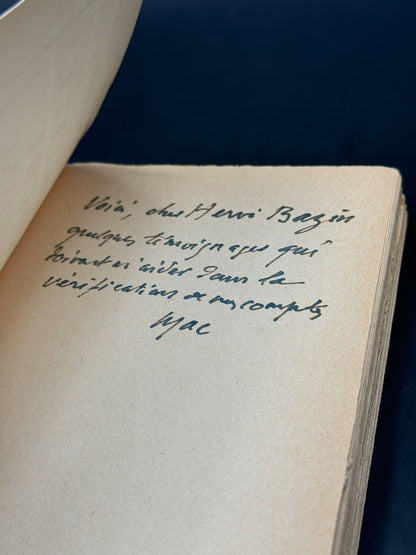 Voici, cher Hervé Bazin
quelques témoignages qui
doivent m'aider dans la
vérification de mes comptes
Mac